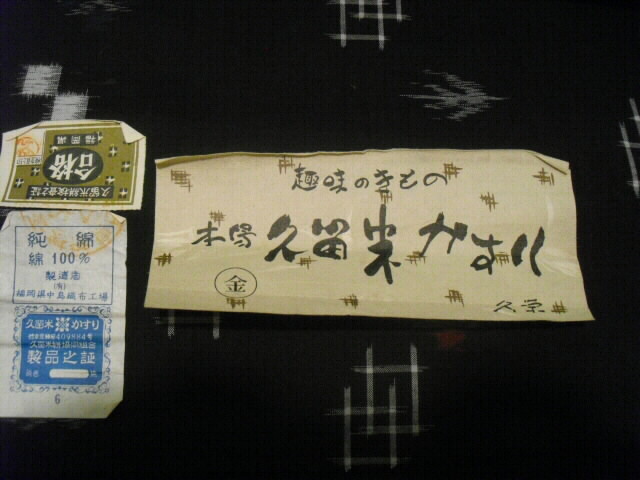 趣味のきもの
本場久留米かすり
金
合格
福岡県
久留米絣検査之証
純綿
綿100%
製造者
(有)
福岡県中島織布工場
久留米かすり
409884号
製品之証
6